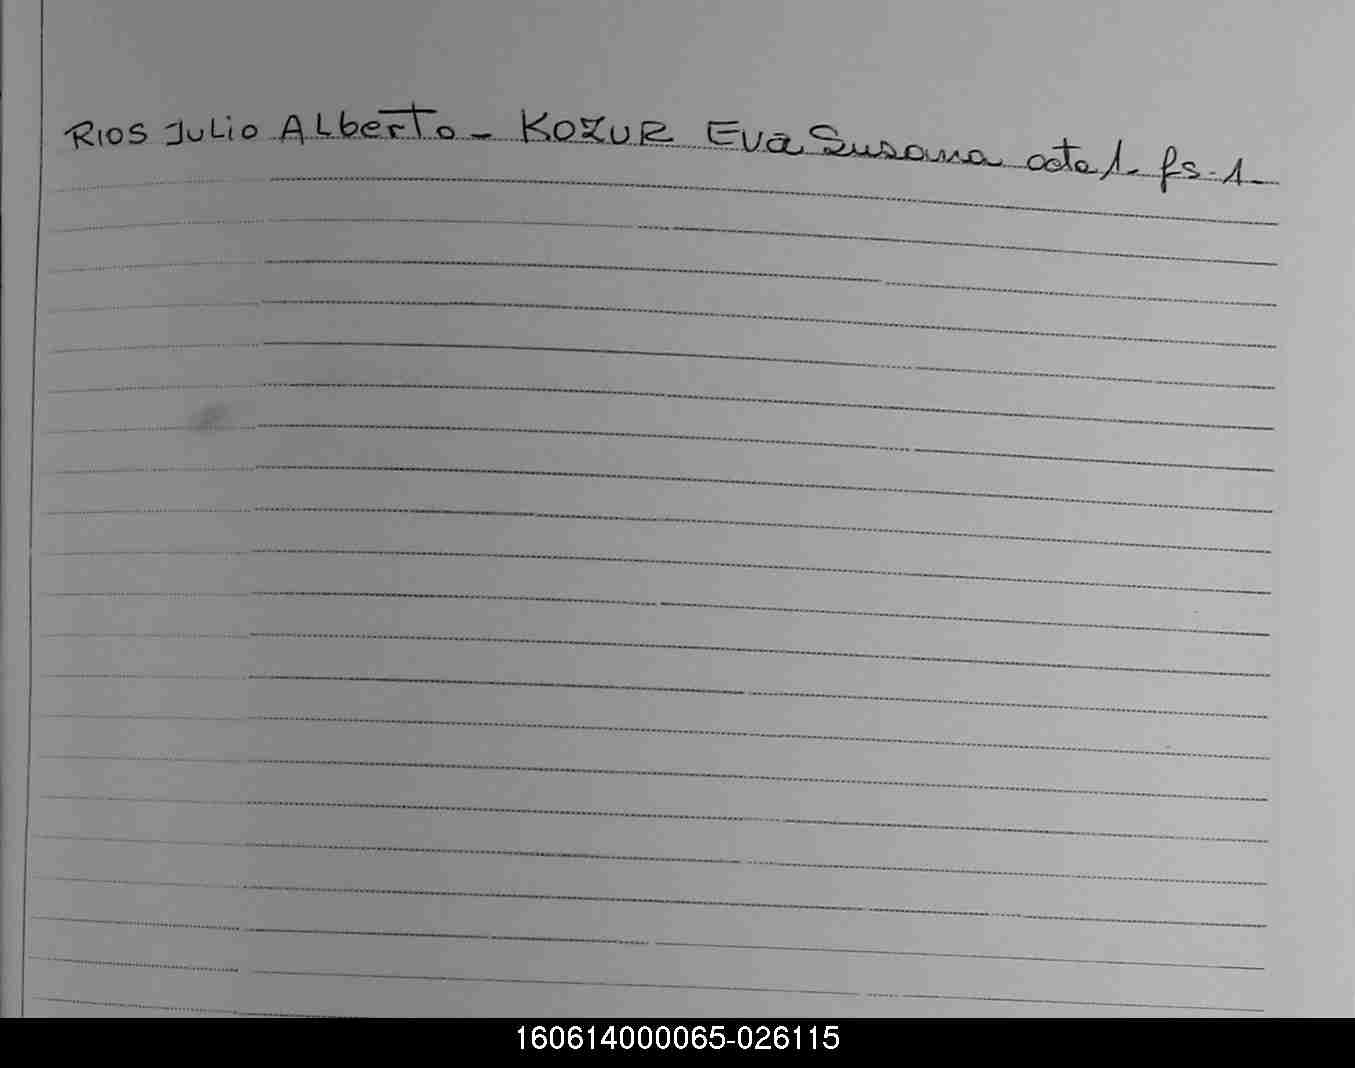 RIOS JULIO ALberTo - KOZUR EVa Susana acta 1- fs. 1-
160614000065-026115